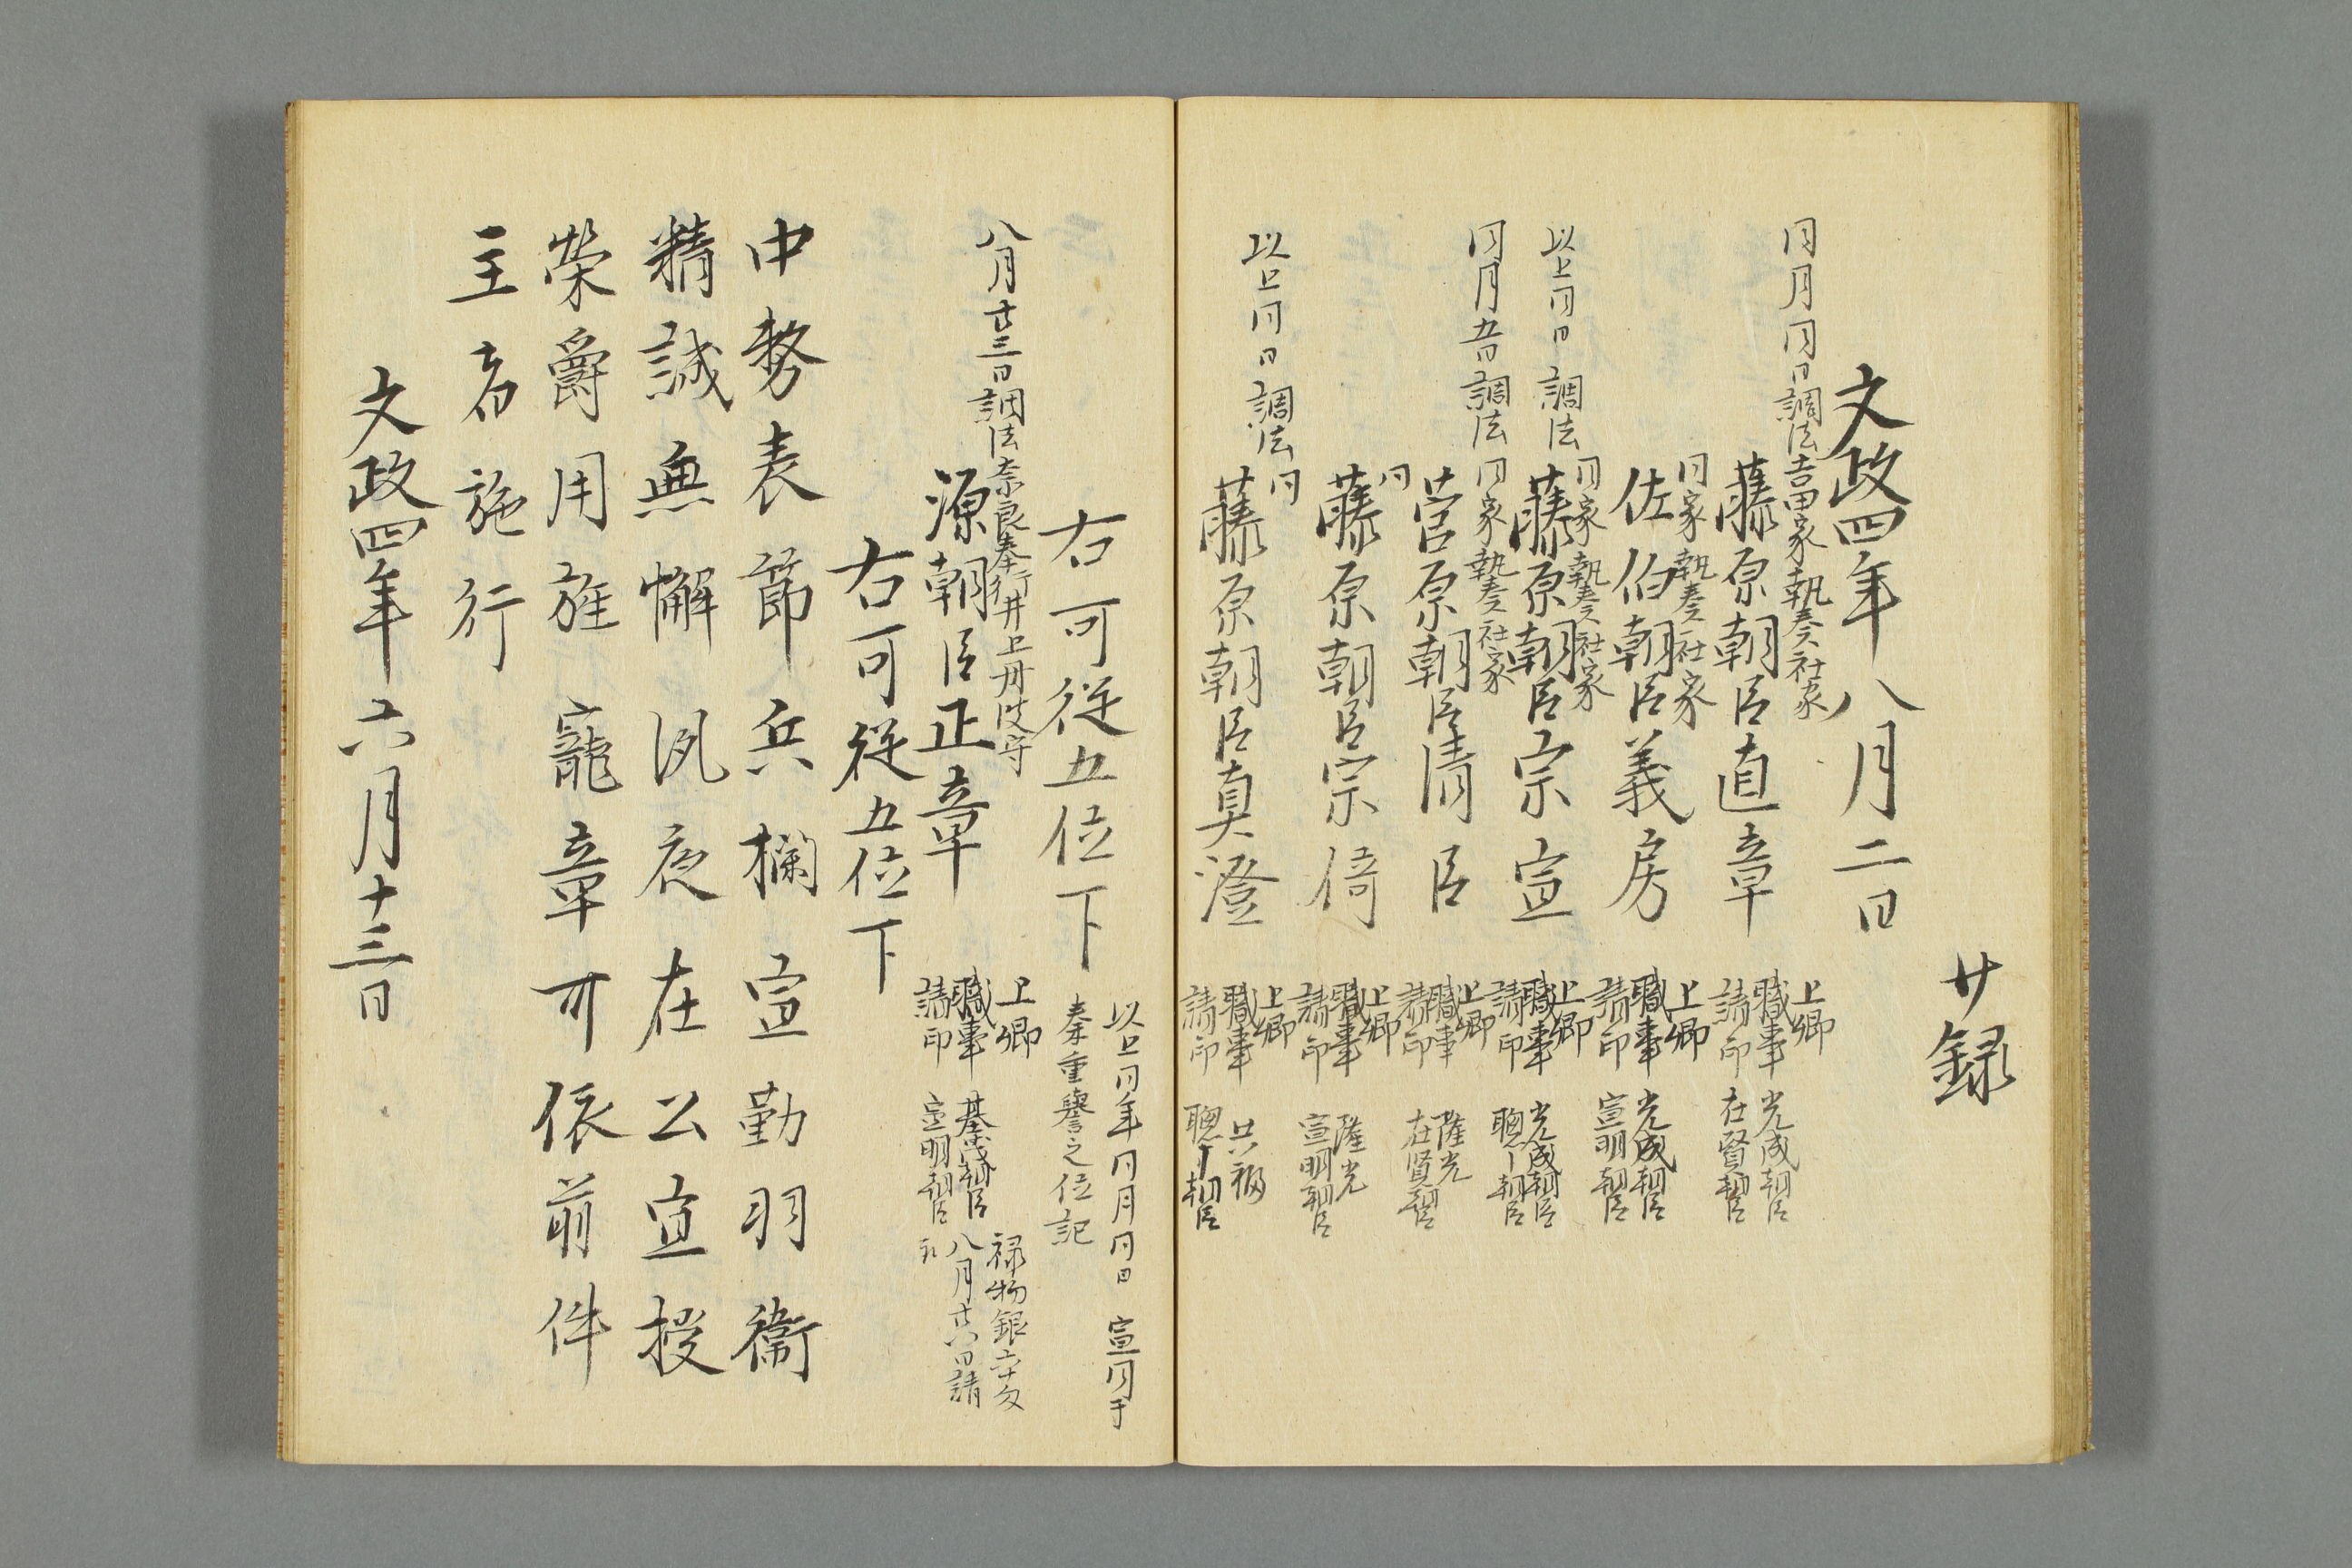 廿録
文政四年八月二日
同月同日調法吉田家執奏社家
藤原朝臣直章
上卿
職事 光成朝臣
請印 在賢朝臣
同家執奏社家
佐伯朝臣義房
上卿
職事 光成朝臣
請印 宣明朝臣
以上同日調法
同家執奏社家
藤原朝臣宗宣
上卿
職事 光成朝臣
請印 聰丨朝臣
同月五日調法同家執奏社家
菅原朝臣清臣
上卿
職事 隆光
請印 在賢朝臣
同
藤原朝臣宗倚
上卿
職事 隆光
請印 宣明朝臣
以上同日調法同
藤原朝臣真澄
上卿
職事
請印 聰丨朝臣
右可従五位下
以上同年同月同日 宣同于
秦重誉之位記
八月廿三日調法奈良奉行井上丹波守
源朝臣正章
上卿
職事 基茂朝臣
請印 宣明朝臣
禄物銀
八月廿六日請
印
右可従五位下
中務表節兵欄宣勤羽衛
精誠無懈夙夜在公宜授
榮爵用旌寵章可依前件
主者施行
文政四年六月十三日